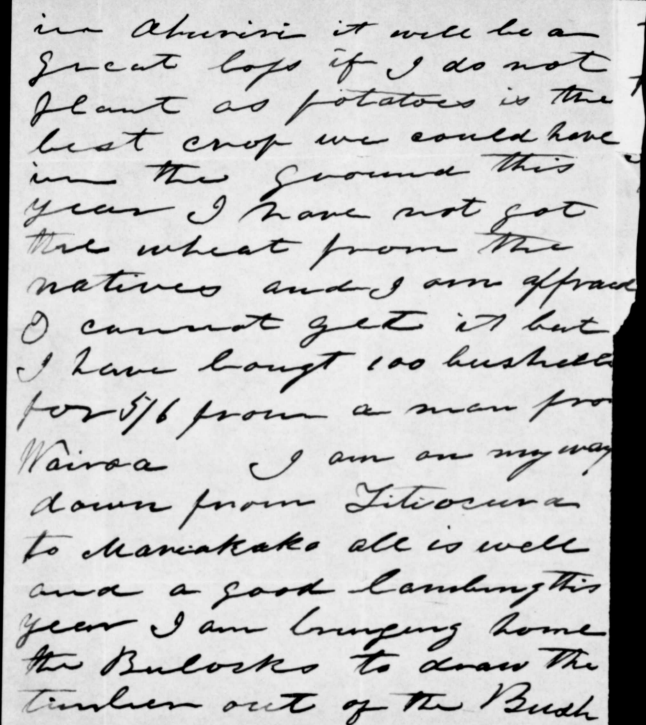 in Ahuriri it will be a
great loss if I do not
plant as potatoes is the
best crop we could have
in the ground this
year I have not got
the wheat from the
natives and I am affraid
I cannot get it but
I have bougt 100 bushells
for 5/6 from a man fro
Wairoa I am on my way
down from Titiocura
to Maraekakaho all is well
and a good lambing this
year I am bringing home
the Bulocks to draw the
timber out of the Bush